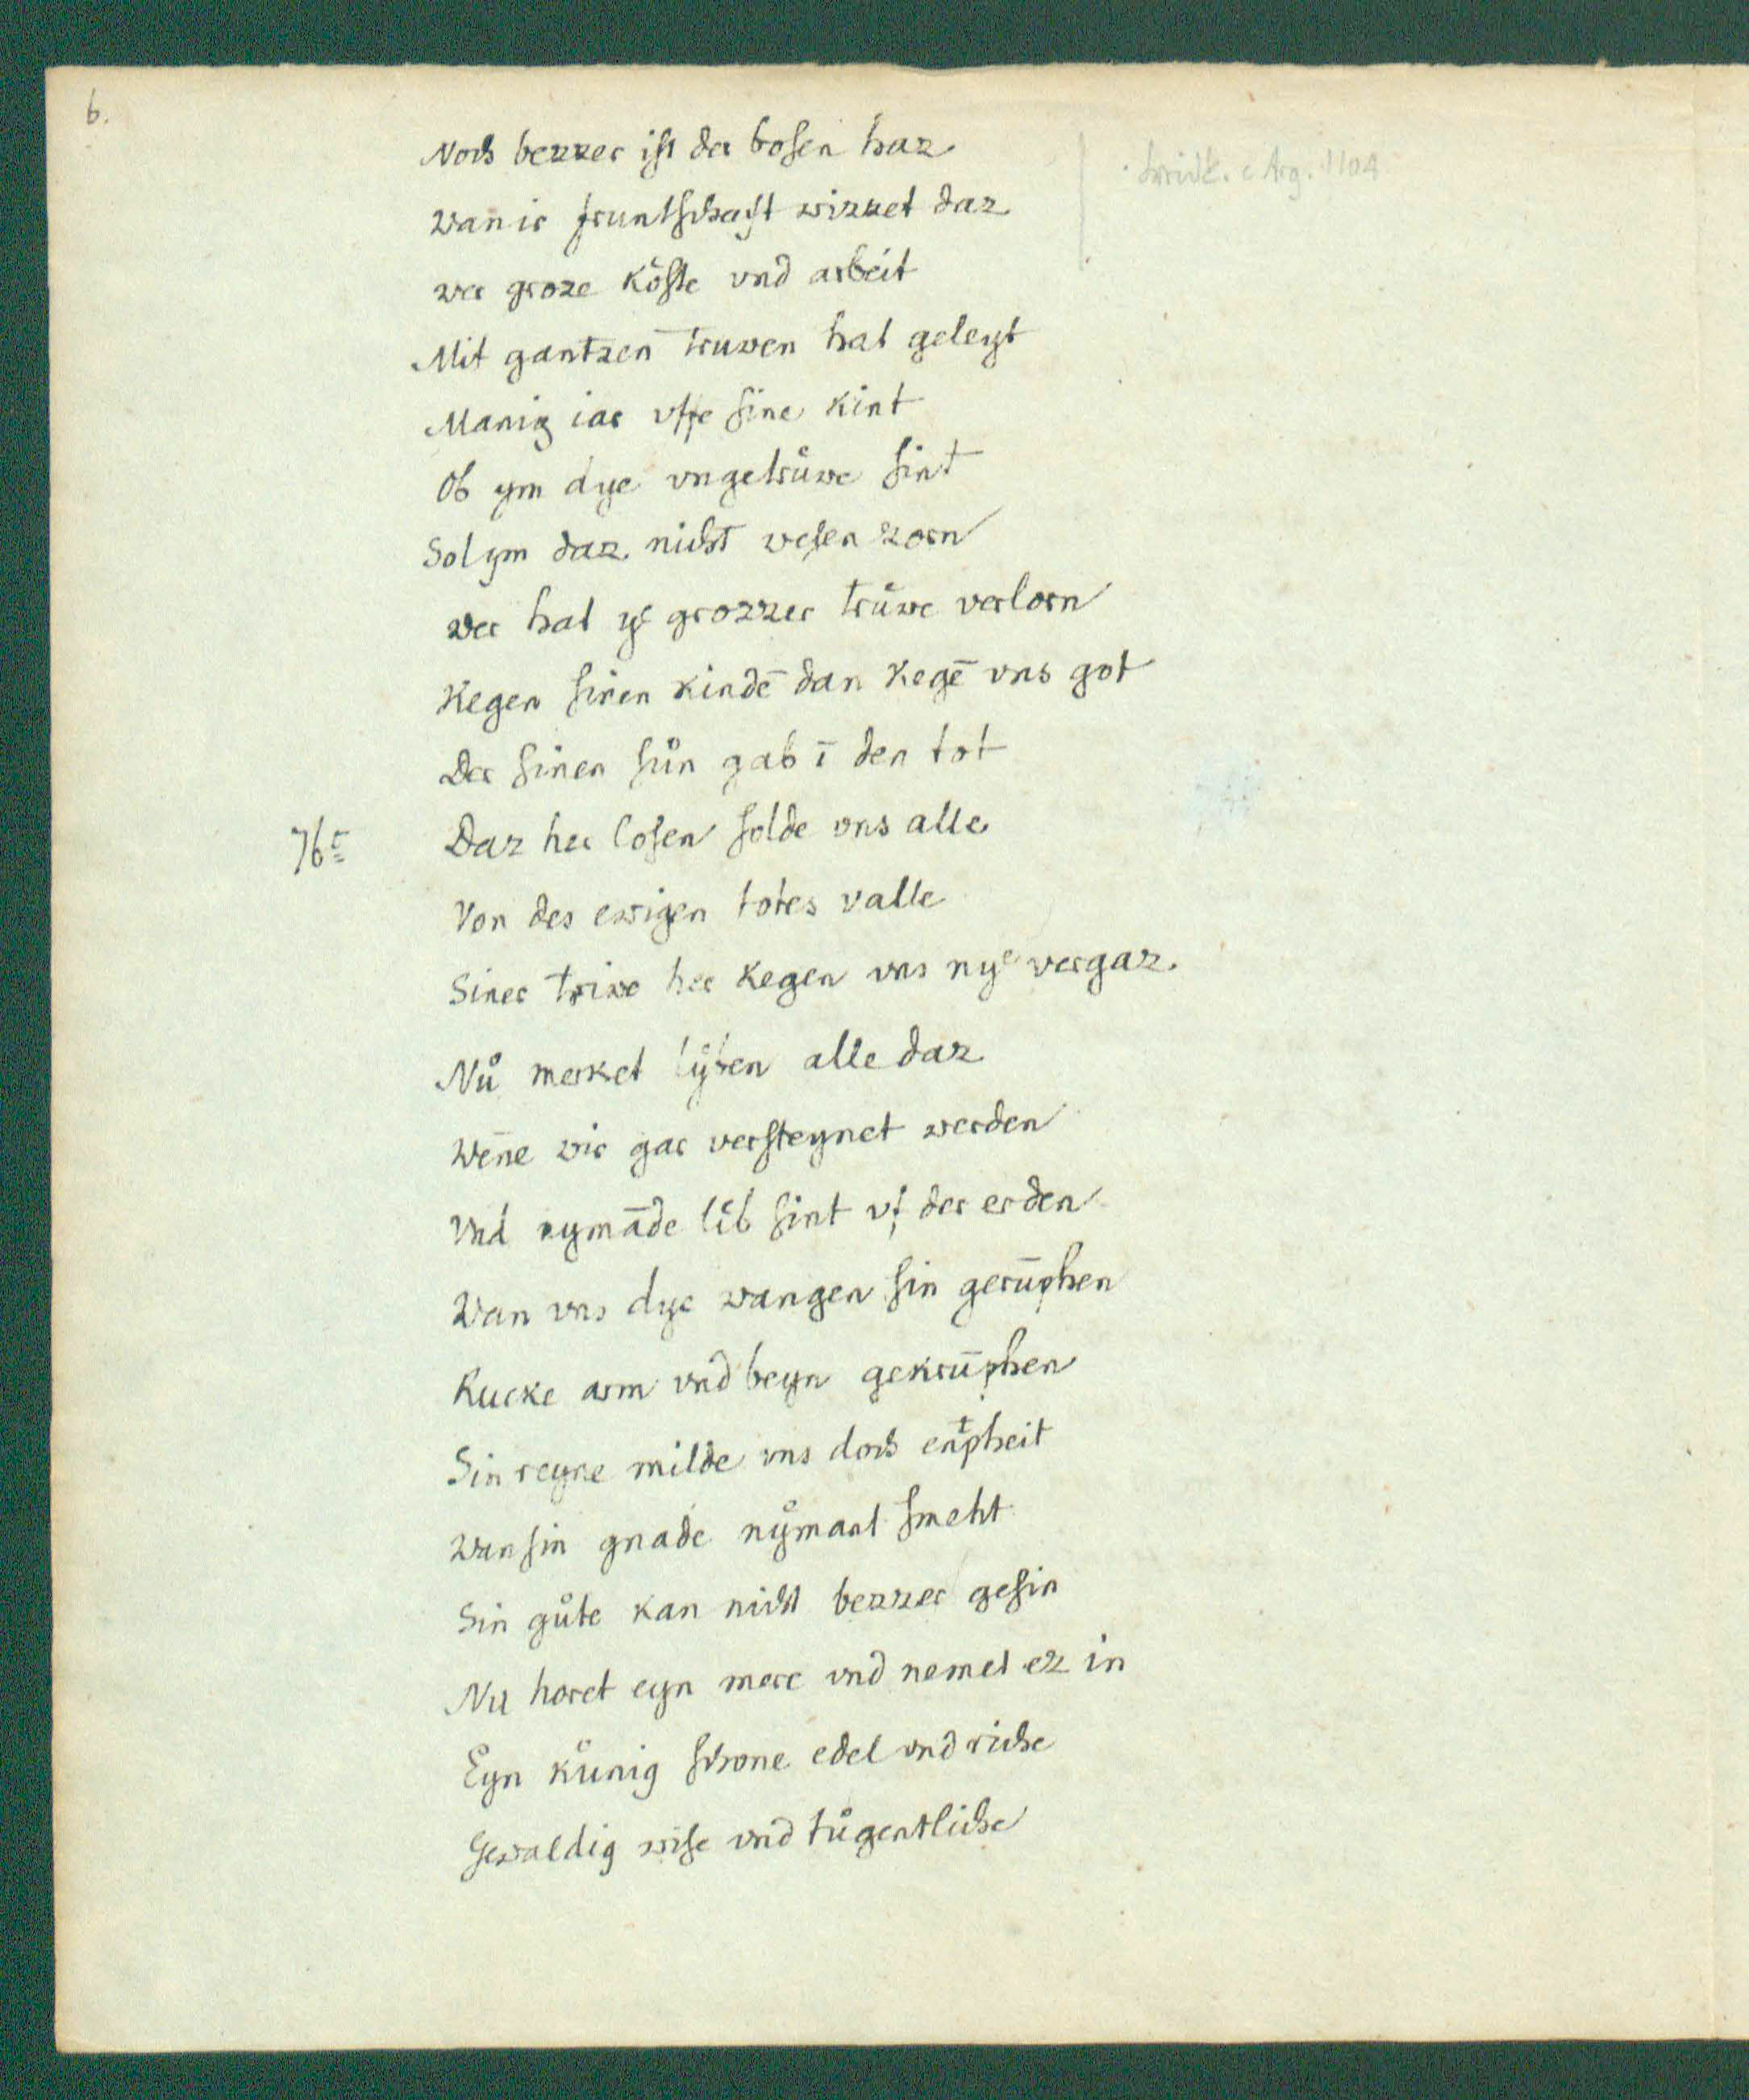 6.
Noch bezzer ist der bosen haz
Wan ir fruntschaft wizzet daz
wer groze koͤste vnd arbeit
Mit gantzen truwen hat geleyt
Manig iar vffe sine kint
Ob ym dye vngetruͦwe sint
Sol ym daz nicht wesen zorn
wer hat yͤ grozzer truͦwe verlorn
Kegen sinen kindē dan kegē vns got
Der sinen suͦn gab ī den tot
76c Daz her losen solde vns alle
Von des ewigen todes valle
Siner triwe her kegen vns nyͤ vergaz.
Nuͦ merket alle daz
Wēne wir gar versteynet werden
Vnd nymāde lib sint vf der erden
Wan vns dye wangen sin gerūphen
Rucke arm vnd beyn gekrūphen
Sin reyne milde vns doch entpheit
Wan sin gnade nyͦmant smeht
Sin guͦte kan nicht bezzer gesin
Nu horet eyn mere vnd nemet ez in
Eyn kuͦnig schone edel vnd riche
Gewaldig wise vnd tuͦgentliche